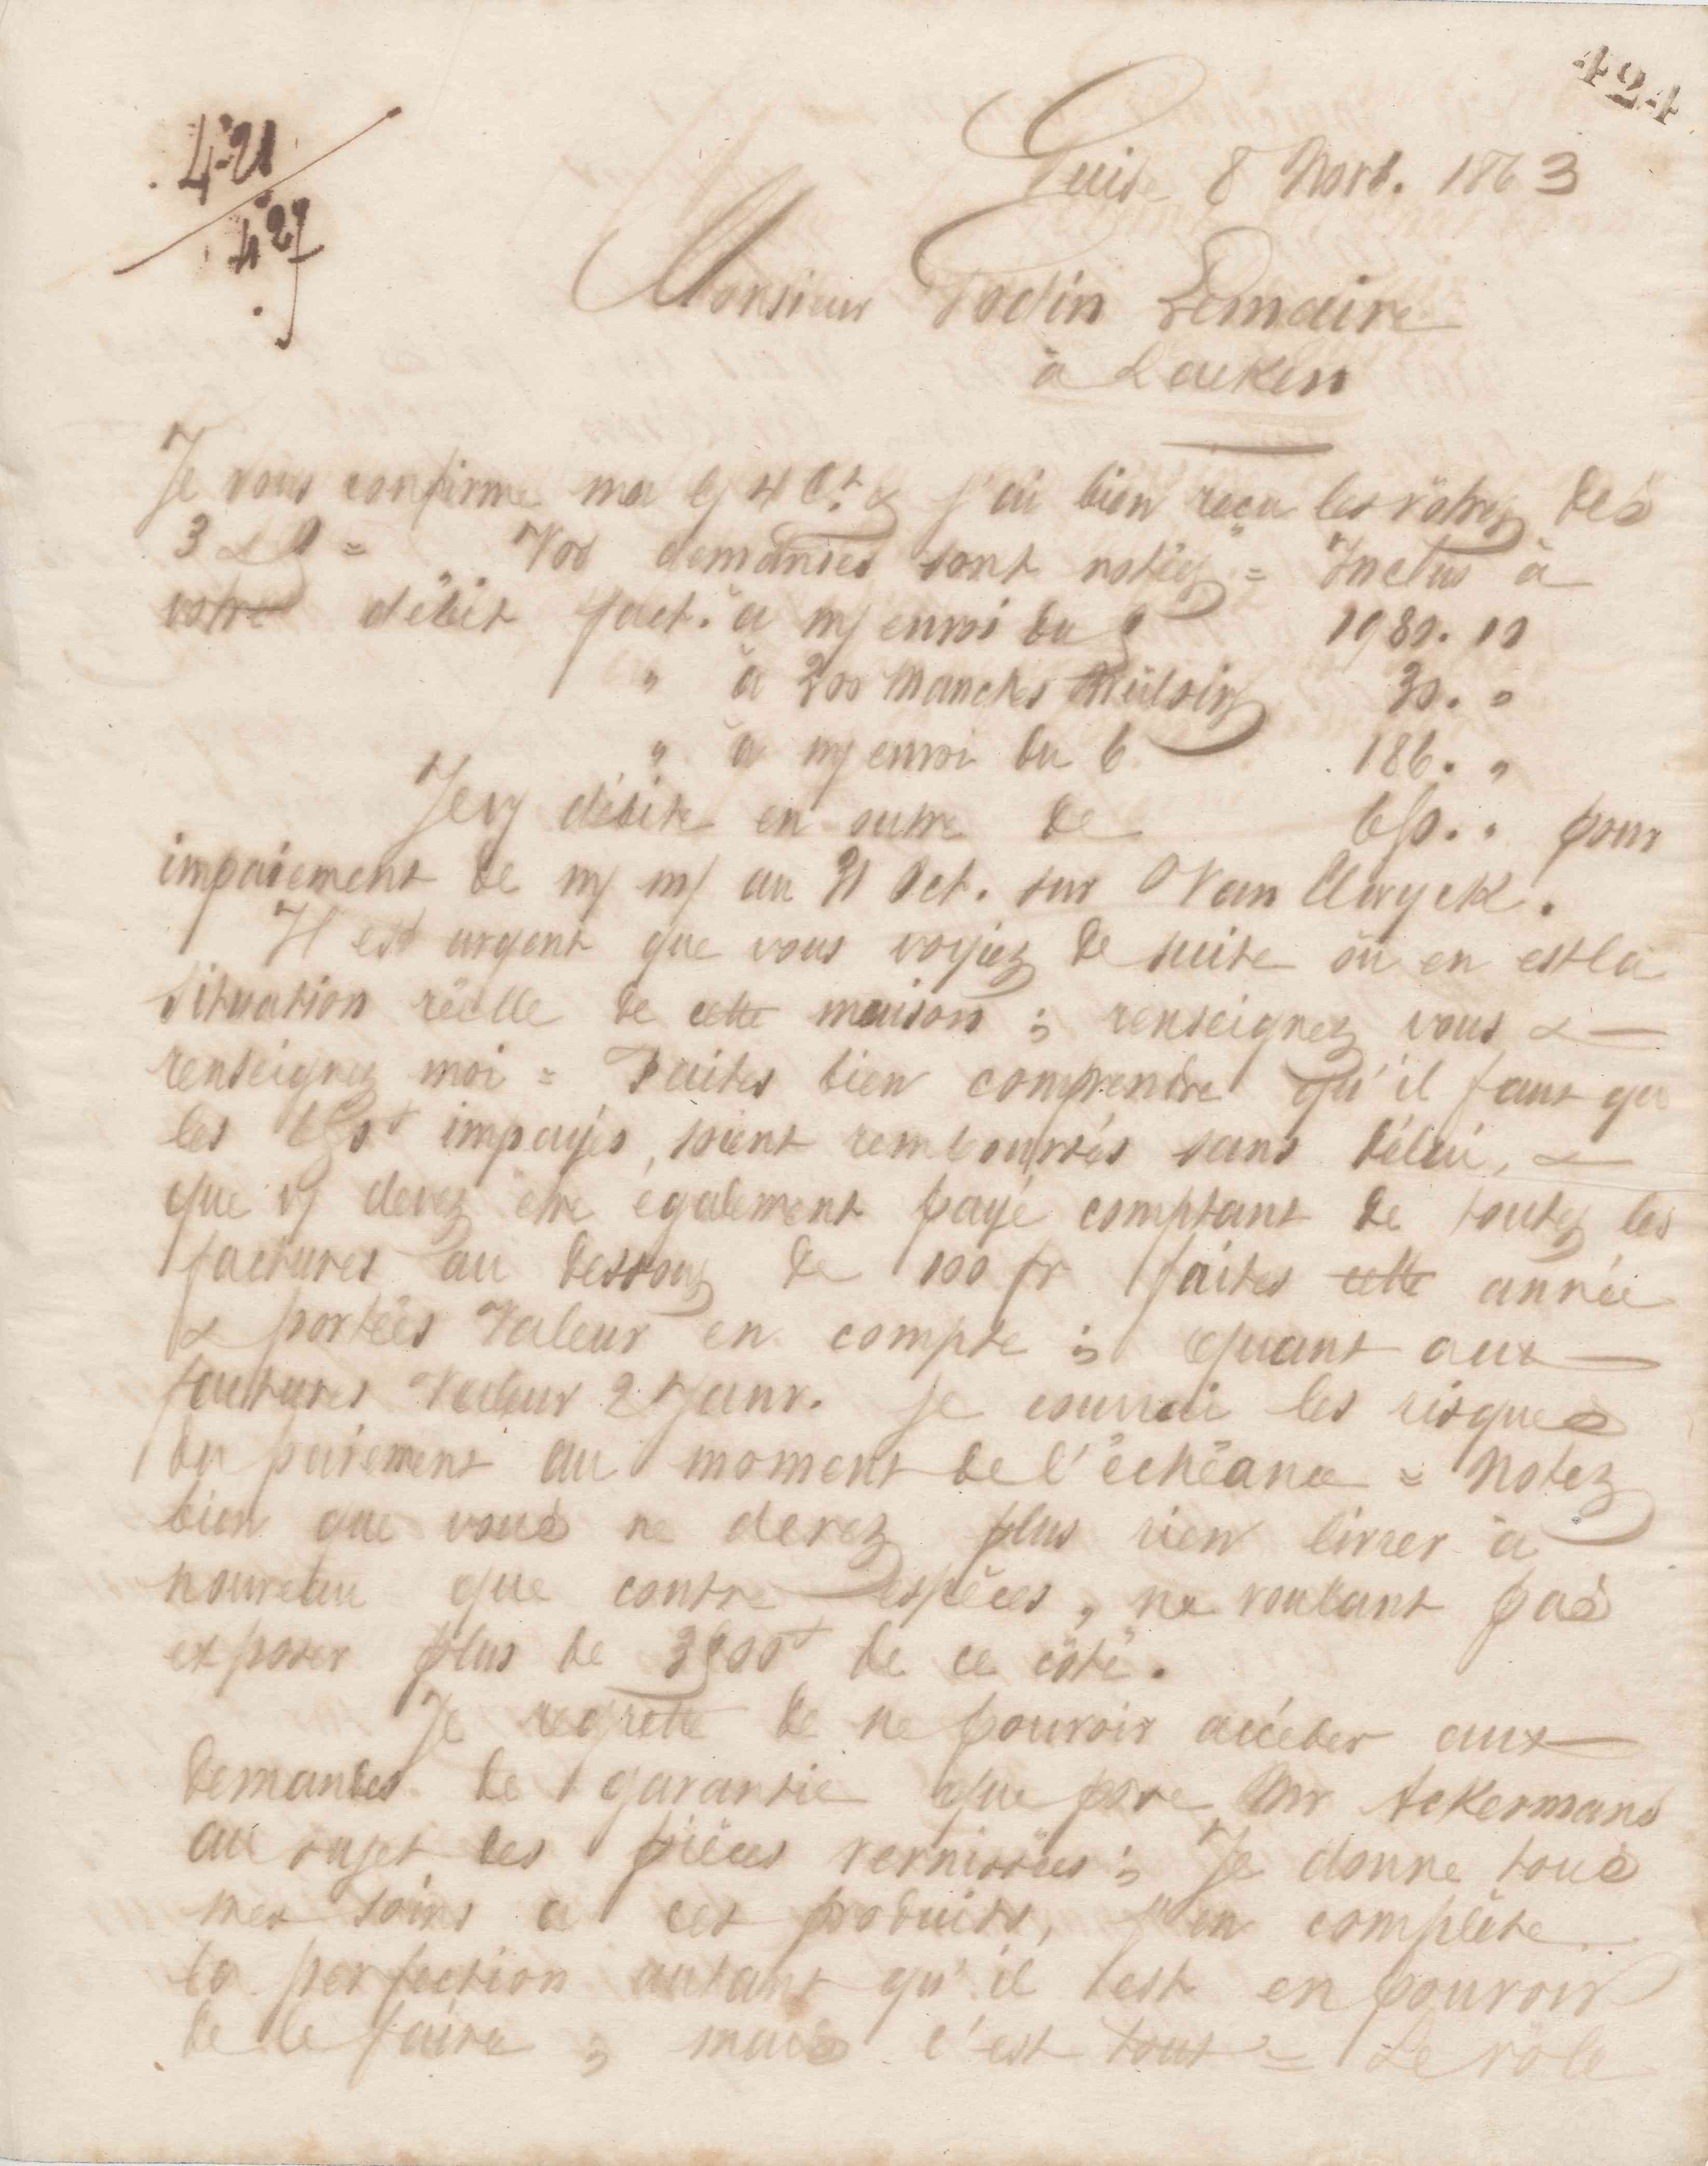 424
421
427
Guise 8 Novb. 1863
Monsieur Godin Lemaire
à Laeken
Je vous confirme ma l/ 4 ct. & j'ai bien reçu les vôtres des
3 & = Vos demandes sont notées = Inclus à
votre débit fact. à m/ envoi du 1980.
" à 200 manches 30. "
" à m/ envoi du 6 186. "
Je v/ débite en outre de 650. " pour
impaiement de m/ m/ au 31 Oct. sur Van
Il est urgent que vous voyiez de suite où en est la
situation réelle de cette maison ; renseignez vous &
renseignez moi = Faites bien comprendre qu'il faut que
les 650f impayés, soient remboursés sans délai, &
que v/ devez être également payé comptant de toutes les
factures au dessous de 100 fr faites cette année
& portées valeur en compte ; quant aux
factures valeur 2 Janv. je courrai les risques
du paiement au moment de l'échéance = Notez
bien que vous ne devez plus rien livrer à
nouveau que contre espèces, ne voulant pas
exposer plus de 3500f de ce côté.
Je regrette de ne pouvoir accéder aux
demandes de garantie que pose Mr Ackermans
au sujet des pièces vernissées ; Je donne tous
mes soins à ces produits, j'en complète
la perfection autant qu'il est en pouvoir
de le faire ; mais c'est tout = Le rôle